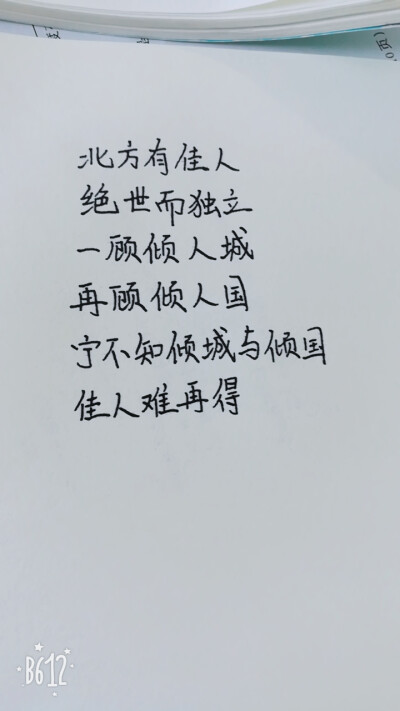 北方有佳人
绝世而独立
一顾倾人城
再顾倾人国
宁不知倾城与倾国
佳人难再得
B612